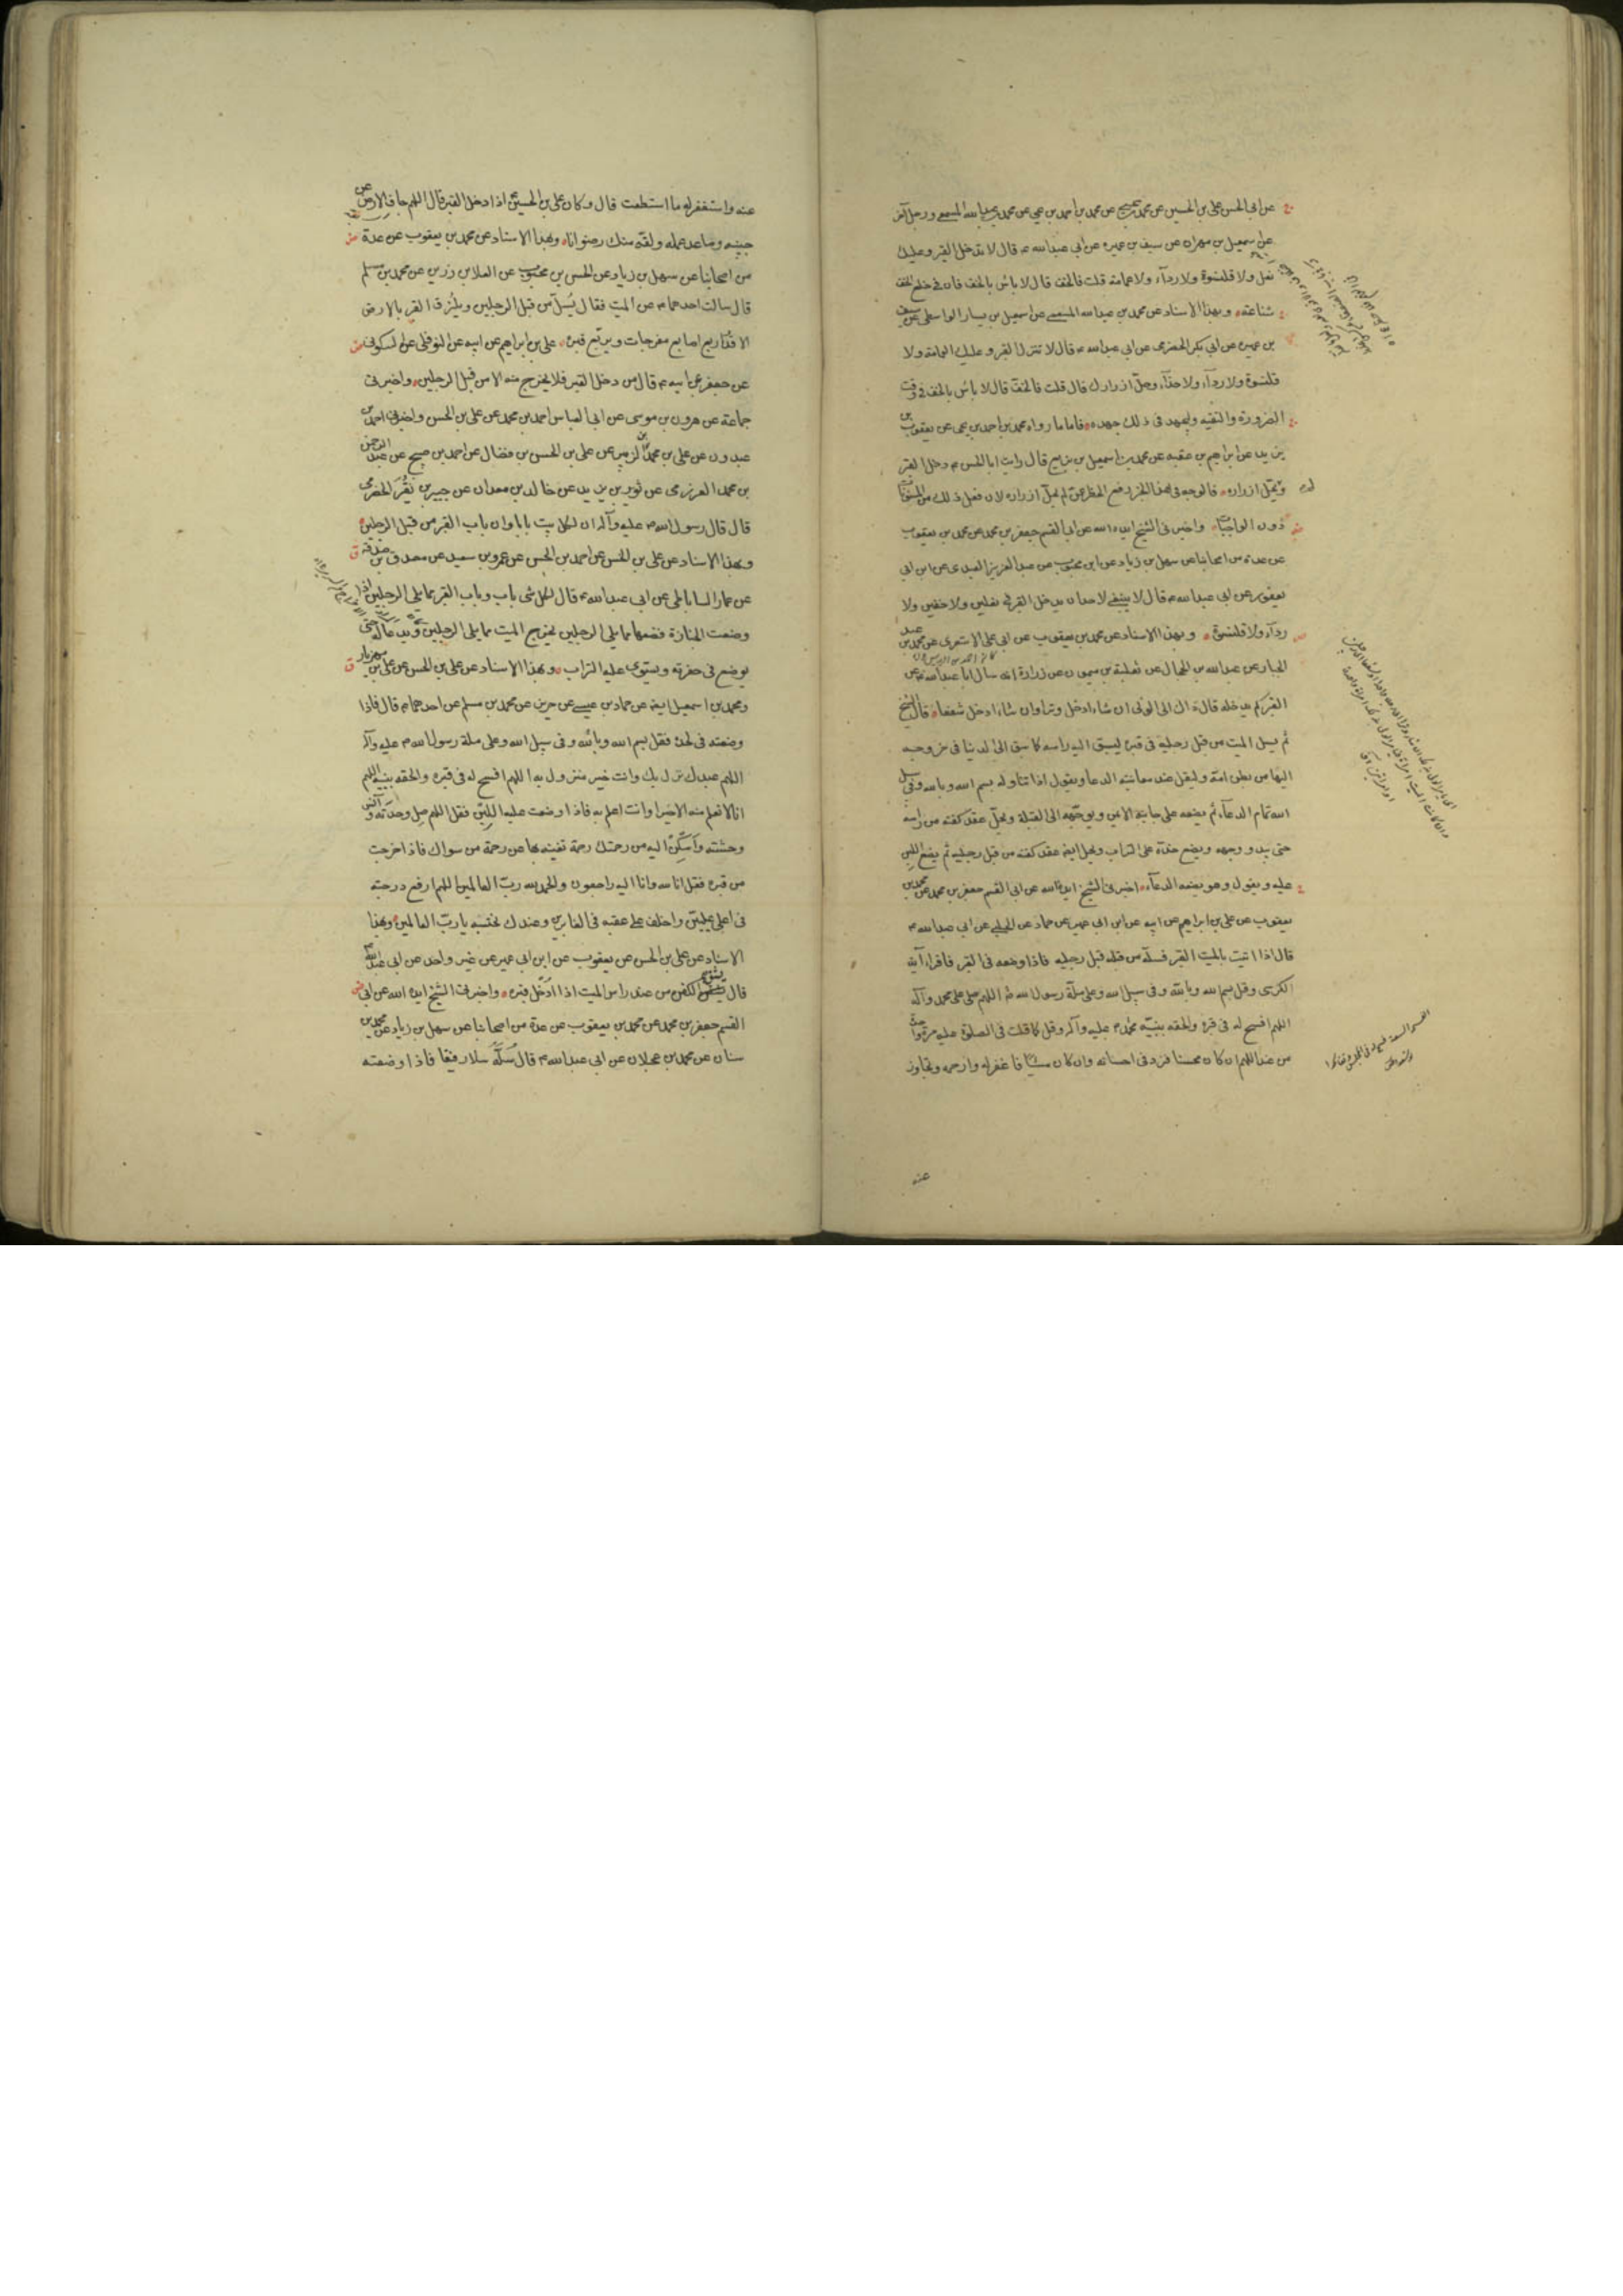 عن ابي الحسن علي بن الحسين عن محمد بن يحيى عن محمد بن احمد بن يحيى عن محمد بن عبد الله المسمعي ورجل آخر
عن اسمعيل بن مهران عن سيف بن عميره عن ابي عبد الله ع قال لا تدخل القبر وعليك
نعل ولا قلنسوة ولا رداء ولا عمامة قلت فالخف قال لا باس بالخف فان في خلع الخف
شناعة وبهذا الاسناد عن محمد بن عبد الله المسمعي عن اسمعيل بن يسار الواسطي عن سيف
بن عميره عن ابي بكر الحضرمي عن ابي عبد الله ع قال لا تنزل القبر وعليك العمامة ولا
قلنسوة ولا رداء ولا حذاء وحل ازرارك قال قلت فالخف قال لا باس بالخف في وقت
الضرورة والتقيه وليجهد في ذلك جهده فاما ما رواه محمد بن احمد بن يحيى عن يعقوب بن
يزيد عن ابراهيم بن عقبه عن محمد بن اسمعيل بن بزيع قال رايت ابا الحسن ع دخل القبر
ولم يحل ازراره فالوجه في هذا الخبر رفع الحظر عمن لم يحل ازراره لان فعل ذلك من المسنونات
دون الواجبات واخبرني الشيخ ايده الله عن ابي القسم جعفر بن محمد عن محمد بن يعقوب
عن عدة من اصحابنا عن سهل بن زياد عن ابن محبوب عن عبد العزيز العبدي عن ابن ابي
يعفور عن ابي عبد الله ع قال لا ينبغي لاحد ان يدخل القبر في نعلين ولا خفين ولا
رداء ولا قلنسوة وبهذا الاسناد عن محمد بن يعقوب عن ابي علي الاشعري عن محمد بن عبد
الجبار عن عبد الله بن الحجال عن ثعلبة بن ميمون عن زرارة انه سال ابا عبد الله ع عن
القبر كم يدخله قال ذاك الى الولي ان شاء ادخل وترا وان شاء ادخل شفعا قال الشيخ
ثم يسل الميت من قبل رجليه في قبره ليسبق اليه راسه كما سبق الى الدنيا في خروجه
اليها من بطن امه وليقل عند معاينته الدعا ويقول اذا تناوله بسم الله وبالله وفي سبيل
الله تمام الدعاء ثم يضعه على جانبه الايمن ويوجهه الى القبلة ويحل عقد كفنه من راسه
حتى يبدو وجهه ويضع خده على التراب ويحل ايضا عقد كفنه من قبل رجليه ثم يضع اللبن
عليه ويقول وهو يضعه الدعاء اخبرني الشيخ ايده الله عن ابي القسم جعفر بن محمد عن محمد بن
يعقوب عن علي بن ابراهيم عن ابيه عن ابن ابي عمير عن حماد عن الحلبي عن ابي عبد الله ع
قال اذا اتيت بالميت القبر فسله من قبل رجليه فاذا وضعته في القبر فاقراء آية
الكرسي وقل بسم الله وبالله وفي سبيل الله وعلى ملة رسول الله ص اللهم صل على محمد وآله
اللهم افسح له في قبره والحقه بنبيه محمد ص عليه وآله وقل كما قلت في الصلوة عليه مرة واحدة
من عند اللهم ان كان محسنا فزد في احسانه وان كان مسيئا فاغفر له وارحمه وتجاوز
عنه
عنه واستغفر له ما استطعت قال وكان علي بن الحسين ع اذا دخل القبر قال اللهم جاف الارض عن
جنبيه وصاعد عمله ولقه منك رضوانا وبهذا الاسناد عن محمد بن يعقوب عن عدة
من اصحابنا عن سهل بن زياد عن الحسن بن محبوب عن العلا بن رزين عن محمد بن مسلم
قال سالت احدهما ع عن الميت فقال يسل من قبل الرجلين ويلزق القبر بالارض
الا قدر اربع اصابع مفرجات ويربع قبره علي بن ابراهيم عن ابيه عن النوفلي عن السكوني
عن جعفر عن ابيه ع قال من دخل القبر فلا يخرج منه الا من قبل الرجلين واخبرني
جماعة عن هرون بن موسى عن ابي العباس احمد بن محمد عن علي بن الحسن واخبرني احمد بن
عبدون عن علي بن محمد بن الزبير عن علي بن الحسن بن فضال عن احمد بن صبيح عن عبد الرحمن
بن محمد العرزمي عن ثوير بن يزيد عن خالد بن معدان عن جبير بن نفير الحضرمي
قال قال رسول الله ص عليه وآله ان لكل بيت بابا وان باب القبر من قبل الرجلين
وبهذا الاسناد عن علي بن الحسن عن احمد بن الحسن عن عمرو بن سعيد عن مصدق بن صدقة
عن عمار الساباطي عن ابي عبد الله ع قال لكل شي باب وباب القبر مما يلي الرجلين اذا
وضعت الجنازة فضعها مما يلي الرجلين يخرج الميت مما يلي الرجلين ويدعا له حتى
يوضع في حفرته ويسوى عليه التراب وبهذا الاسناد عن علي بن الحسن عن علي بن مهزيار
ومحمد بن اسمعيل ايضا عن حماد بن عيسى عن حريز عن محمد بن مسلم عن احدهما ع قال فاذا
وضعته في لحده فقل بسم الله وبالله وفي سبيل الله وعلى ملة رسول الله ص عليه وآله
اللهم عبدك نزل بك وانت خير منزول به اللهم افسح له في قبره والحقه بنبيه اللهم
انا لا نعلم منه الا خيرا وانت اعلم به فاذا وضعت عليه اللبن فقل اللهم صل وحدته وآنس
وحشته واسكن اليه من رحمتك رحمة تغنيه بها عن رحمة من سواك فاذا خرجت
من قبره فقل انا لله وانا اليه راجعون والحمد لله رب العالمين اللهم ارفع درجته
في اعلى عليين واخلف على عقبه في الغابرين وعندك نحتسبه يا رب العالمين وبهذا
الاسناد عن علي بن الحسن عن يعقوب عن ابن ابي عمير عن غير واحد عن ابي عبد الله ع
قال يشق الكفن من عند راس الميت اذا ادخل قبره واخبرني الشيخ ايده الله عن ابي
القسم جعفر بن محمد عن محمد بن يعقوب عن عدة من اصحابنا عن سهل بن زياد عن محمد بن
سنان عن محمد بن عجلان عن ابي عبد الله ع قال سله سلا رفيقا فاذا وضعته